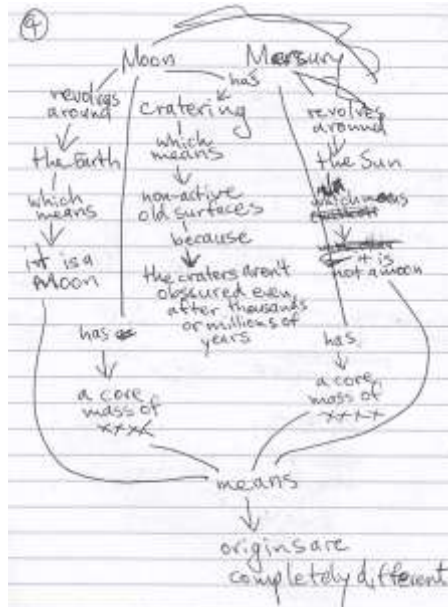 9
Moon
Mercury
has
revolves
around
the Earth
which
means
it is a
Moon
cratering
which
means
non-active
old surfaces
because
the craters aren't
obssured even
after thousands
or millions of
years
revolves
around
the Sun
which means
it is
not a moon
has
a core
mass of
xxxx
has
a core
mass of
xxxx
means
origins are
completely different